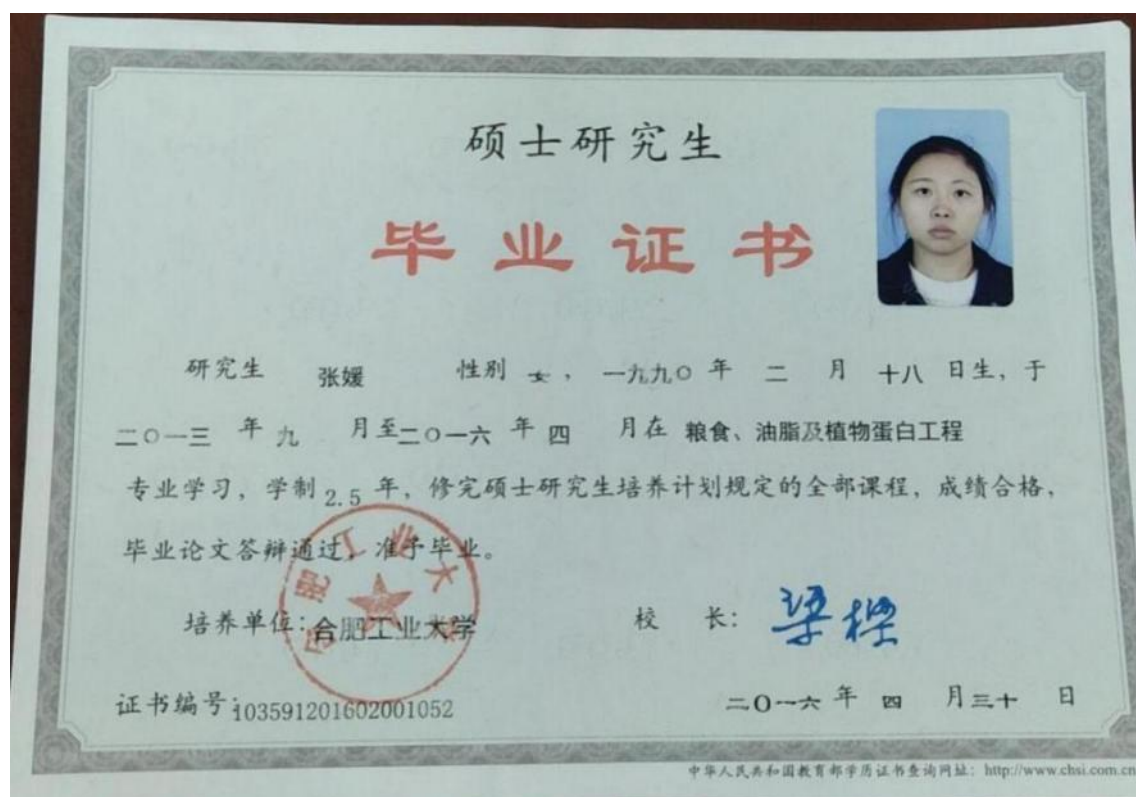 硕士研究生
毕业证书
研究生 张媛 性别 女, 一九九〇年 二 月 十八 日生, 于
二〇一三 年 九 月至二〇一六 年 四 月在 粮食、油脂及植物蛋白工程
专业学习, 学制 2.5 年, 修完硕士研究生培养计划规定的全部课程, 成绩合格,
毕业论文答辩通过, 准予毕业。
合肥工业大学
培养单位: 合肥工业大学 校 长: 梁樑
证书编号: 103591201602001052 二〇一六 年 四 月三十 日
中华人民共和国教育部学历证书查询网址: http://www.chsi.com.cn